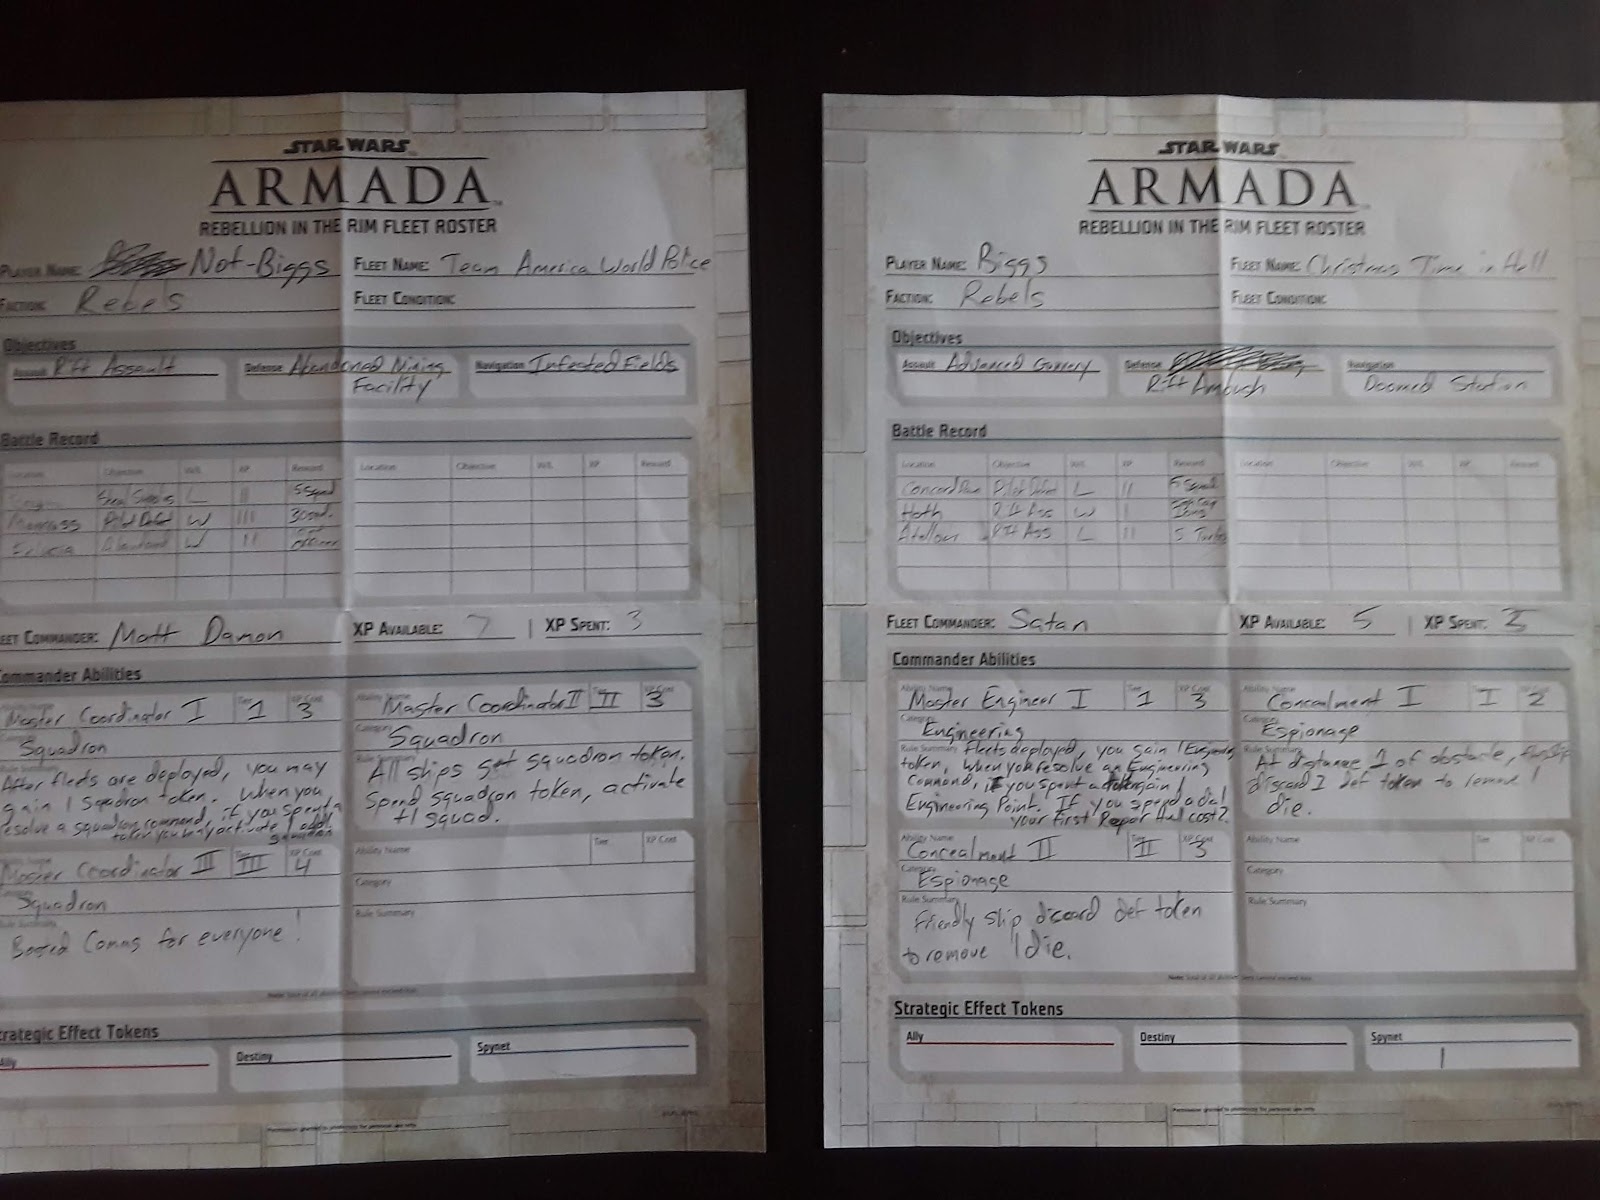 STAR WARS
ARMADA
REBELLION IN THE RIM FLEET ROSTER
PLAYER NAME: Not-Biggs
FLEET NAME: Team America World Police
FACTION: Rebels
FLEET CONDITION:
Objectives
Assault Rift Assault
Defense Abandoned Mining
Facility
Navigation Infested Fields
Battle Record
Location Objective W/L XP Reward
Location Objective W/L XP Reward
L II 5 Squad
Pilot Defect W III
W II
EET COMMANDER: Matt Damon
XP AVAILABLE: 7 | XP SPENT: 3
ommander Abilities
Master Coordinator I Tier 1 XP Cost 3
Squadron
After fleets are deployed, you may
gain 1 squadron token. When you
esolve a squadron command, if you spent a
token you may activate 1 addtl
squadron
Ability Name Master Coordinator II Tier II XP Cost 3
Category Squadron
All ships get squadron token.
Spend squadron token, activate
+1 squad.
Ability Name
Master Coordinator III Tier III XP Cost 4
Squadron
Rule Summary
Boosted Comms for everyone!
Ability Name Tier XP Cost
Category
Rule Summary
trategic Effect Tokens
Ally
Destiny
Spynet
STAR WARS
ARMADA
REBELLION IN THE RIM FLEET ROSTER
PLAYER NAME: Biggs
FLEET NAME: Christmas Time in Hell
FACTION: Rebels
FLEET CONDITION:
Objectives
Assault Advanced Gunnery
Defense
Rift Ambush
Navigation
Doomed Station
Battle Record
Location Objective W/L XP Reward
Location Objective W/L XP Reward
Concord Dawn Pilot Defect L II 5 Squad
Hoth Rift Ass W I
Atollon Rift Ass L II 5 Turbo
FLEET COMMANDER: Satan
XP AVAILABLE: 5 | XP SPENT:
Commander Abilities
Ability Name Master Engineer I Tier 1 XP Cost 3
Category Engineering
Rule Summary Fleets deployed, you gain 1 Engineering
token. When you resolve an Engineering
command, if you spent a token gain 1
Engineering Point. If you spend a dial
your first Repair Hull cost 2.
Ability Name Concealment I Tier I XP Cost 2
Category Espionage
Rule Summary At distance 1 of obstacle, flagship
discard 1 def token to remove 1
die.
Ability Name Concealment II Tier II XP Cost 3
Category Espionage
Rule Summary
Friendly ship discard def token
to remove 1 die.
Ability Name Tier XP Cost
Category
Rule Summary
Strategic Effect Tokens
Ally
Destiny
Spynet
1